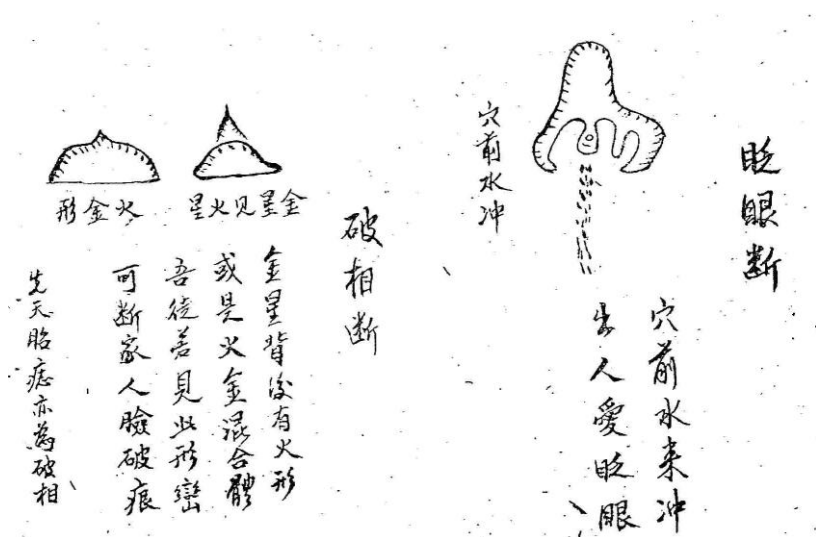 眨眼断
穴前水来冲
出人愛眨眼
穴前水冲
破相断
金星見火星
火金形
金星背後有火形
或是火金混合體
吾徒若見此形巒
可断家人臉破痕
先天胎痣亦為破相